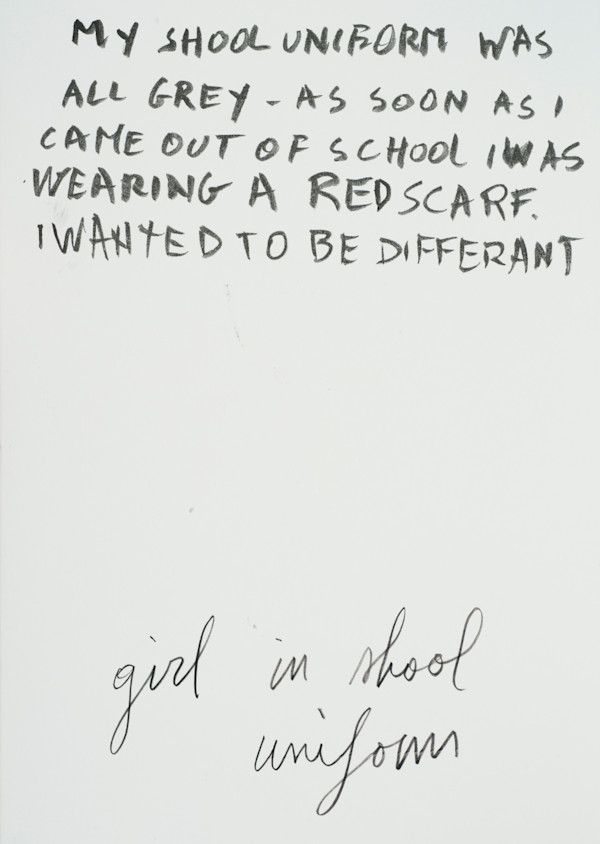 MY SHOOL UNIFORM WAS
ALL GREY - AS SOON AS I
CAME OUT OF SCHOOL I WAS
WEARING A RED SCARF.
I WANTED TO BE DIFFERANT
girl in shool
uniform